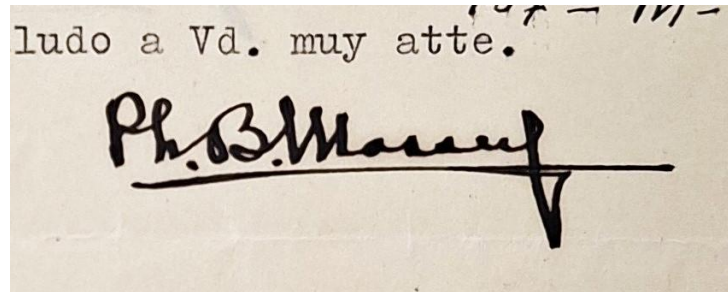 ludo a Vd. muy atte.
Ph. B. Massey